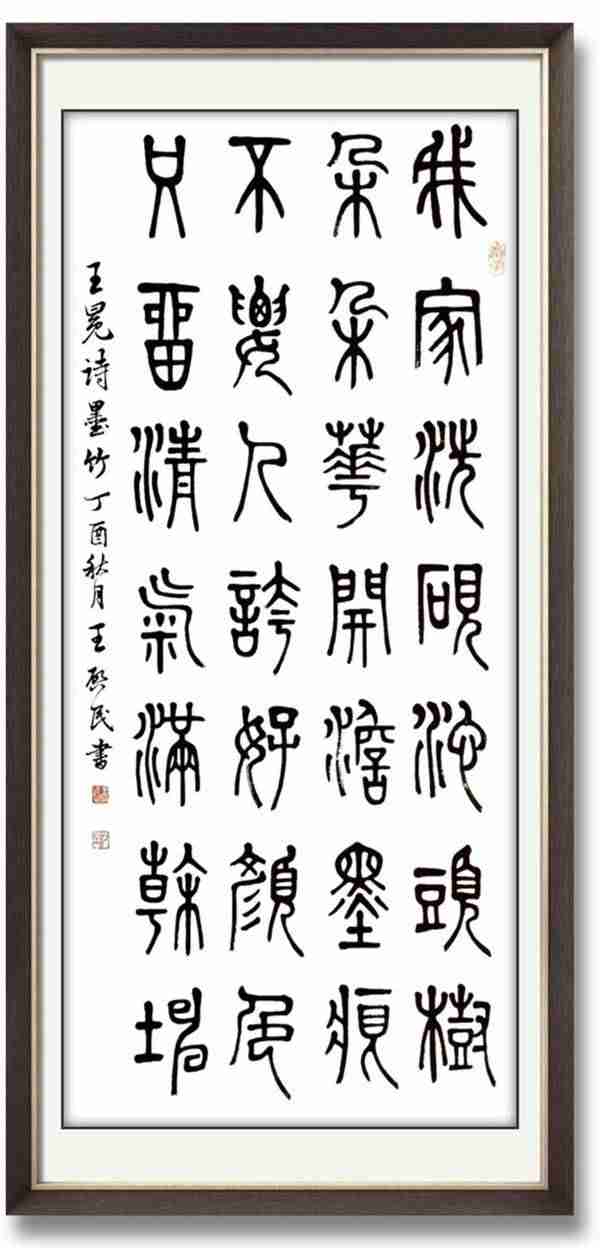 我家洗硯池頭樹
朵朵華開澹墨痕
不要人誇好顏色
只留清氣滿乾坤
王冕诗墨竹丁酉秋月王启民書